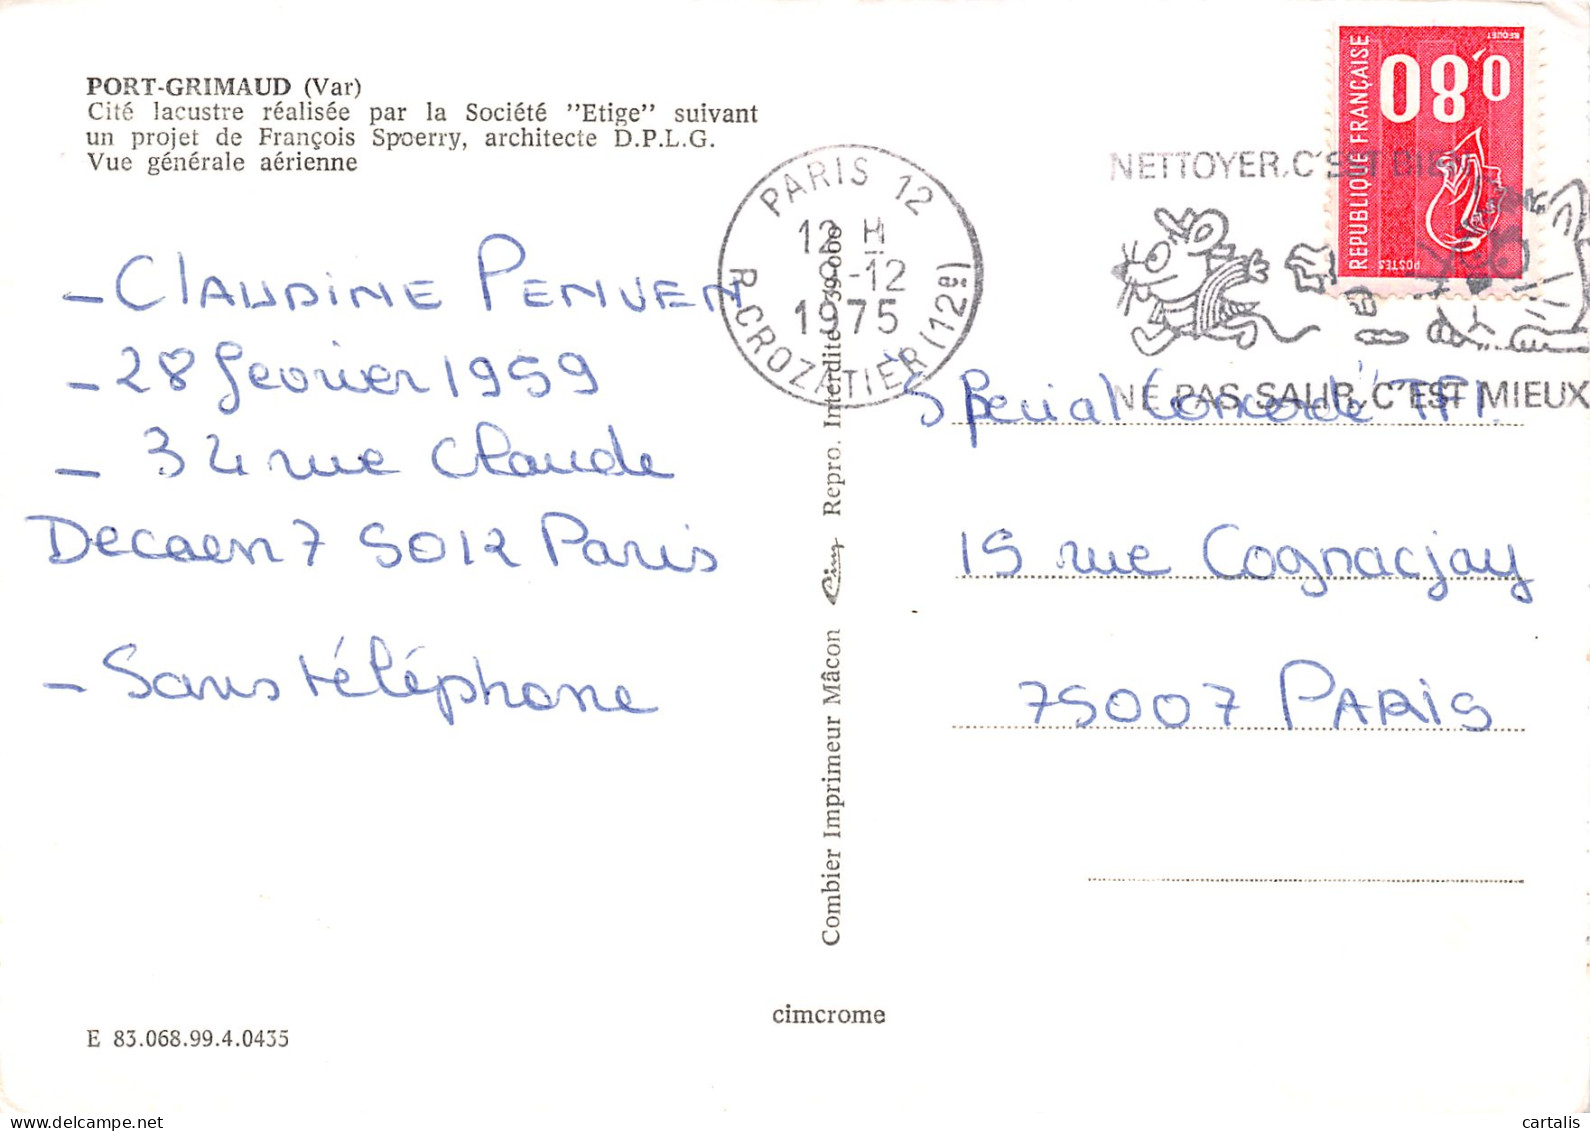 PORT-GRIMAUD (Var)
Cité lacustre réalisée par la Société "Etige" suivant
un projet de François Spoerry, architecte D.P.L.G.
Vue générale aérienne
- CLAUDINE PENVEN
- 28 fevrier 1959
- 34 rue Claude
Decaen 75012 Paris
- Sans téléphone
E 83.068.99.4.0435
PARIS 12
12 H
-12
1975
R. CROZATIER (12e)
Combier Imprimeur Mâcon Cim Repro. Interdite
cimcrome
NETTOYER, C'EST BIEN
NE PAS SALIR, C'EST MIEUX
0,80
REPUBLIQUE FRANÇAISE
POSTES
BEQUET
Spécial Concorde TF1.
15 rue Cognacjay
75007 PARIS
cartalis
www.delcampe.net